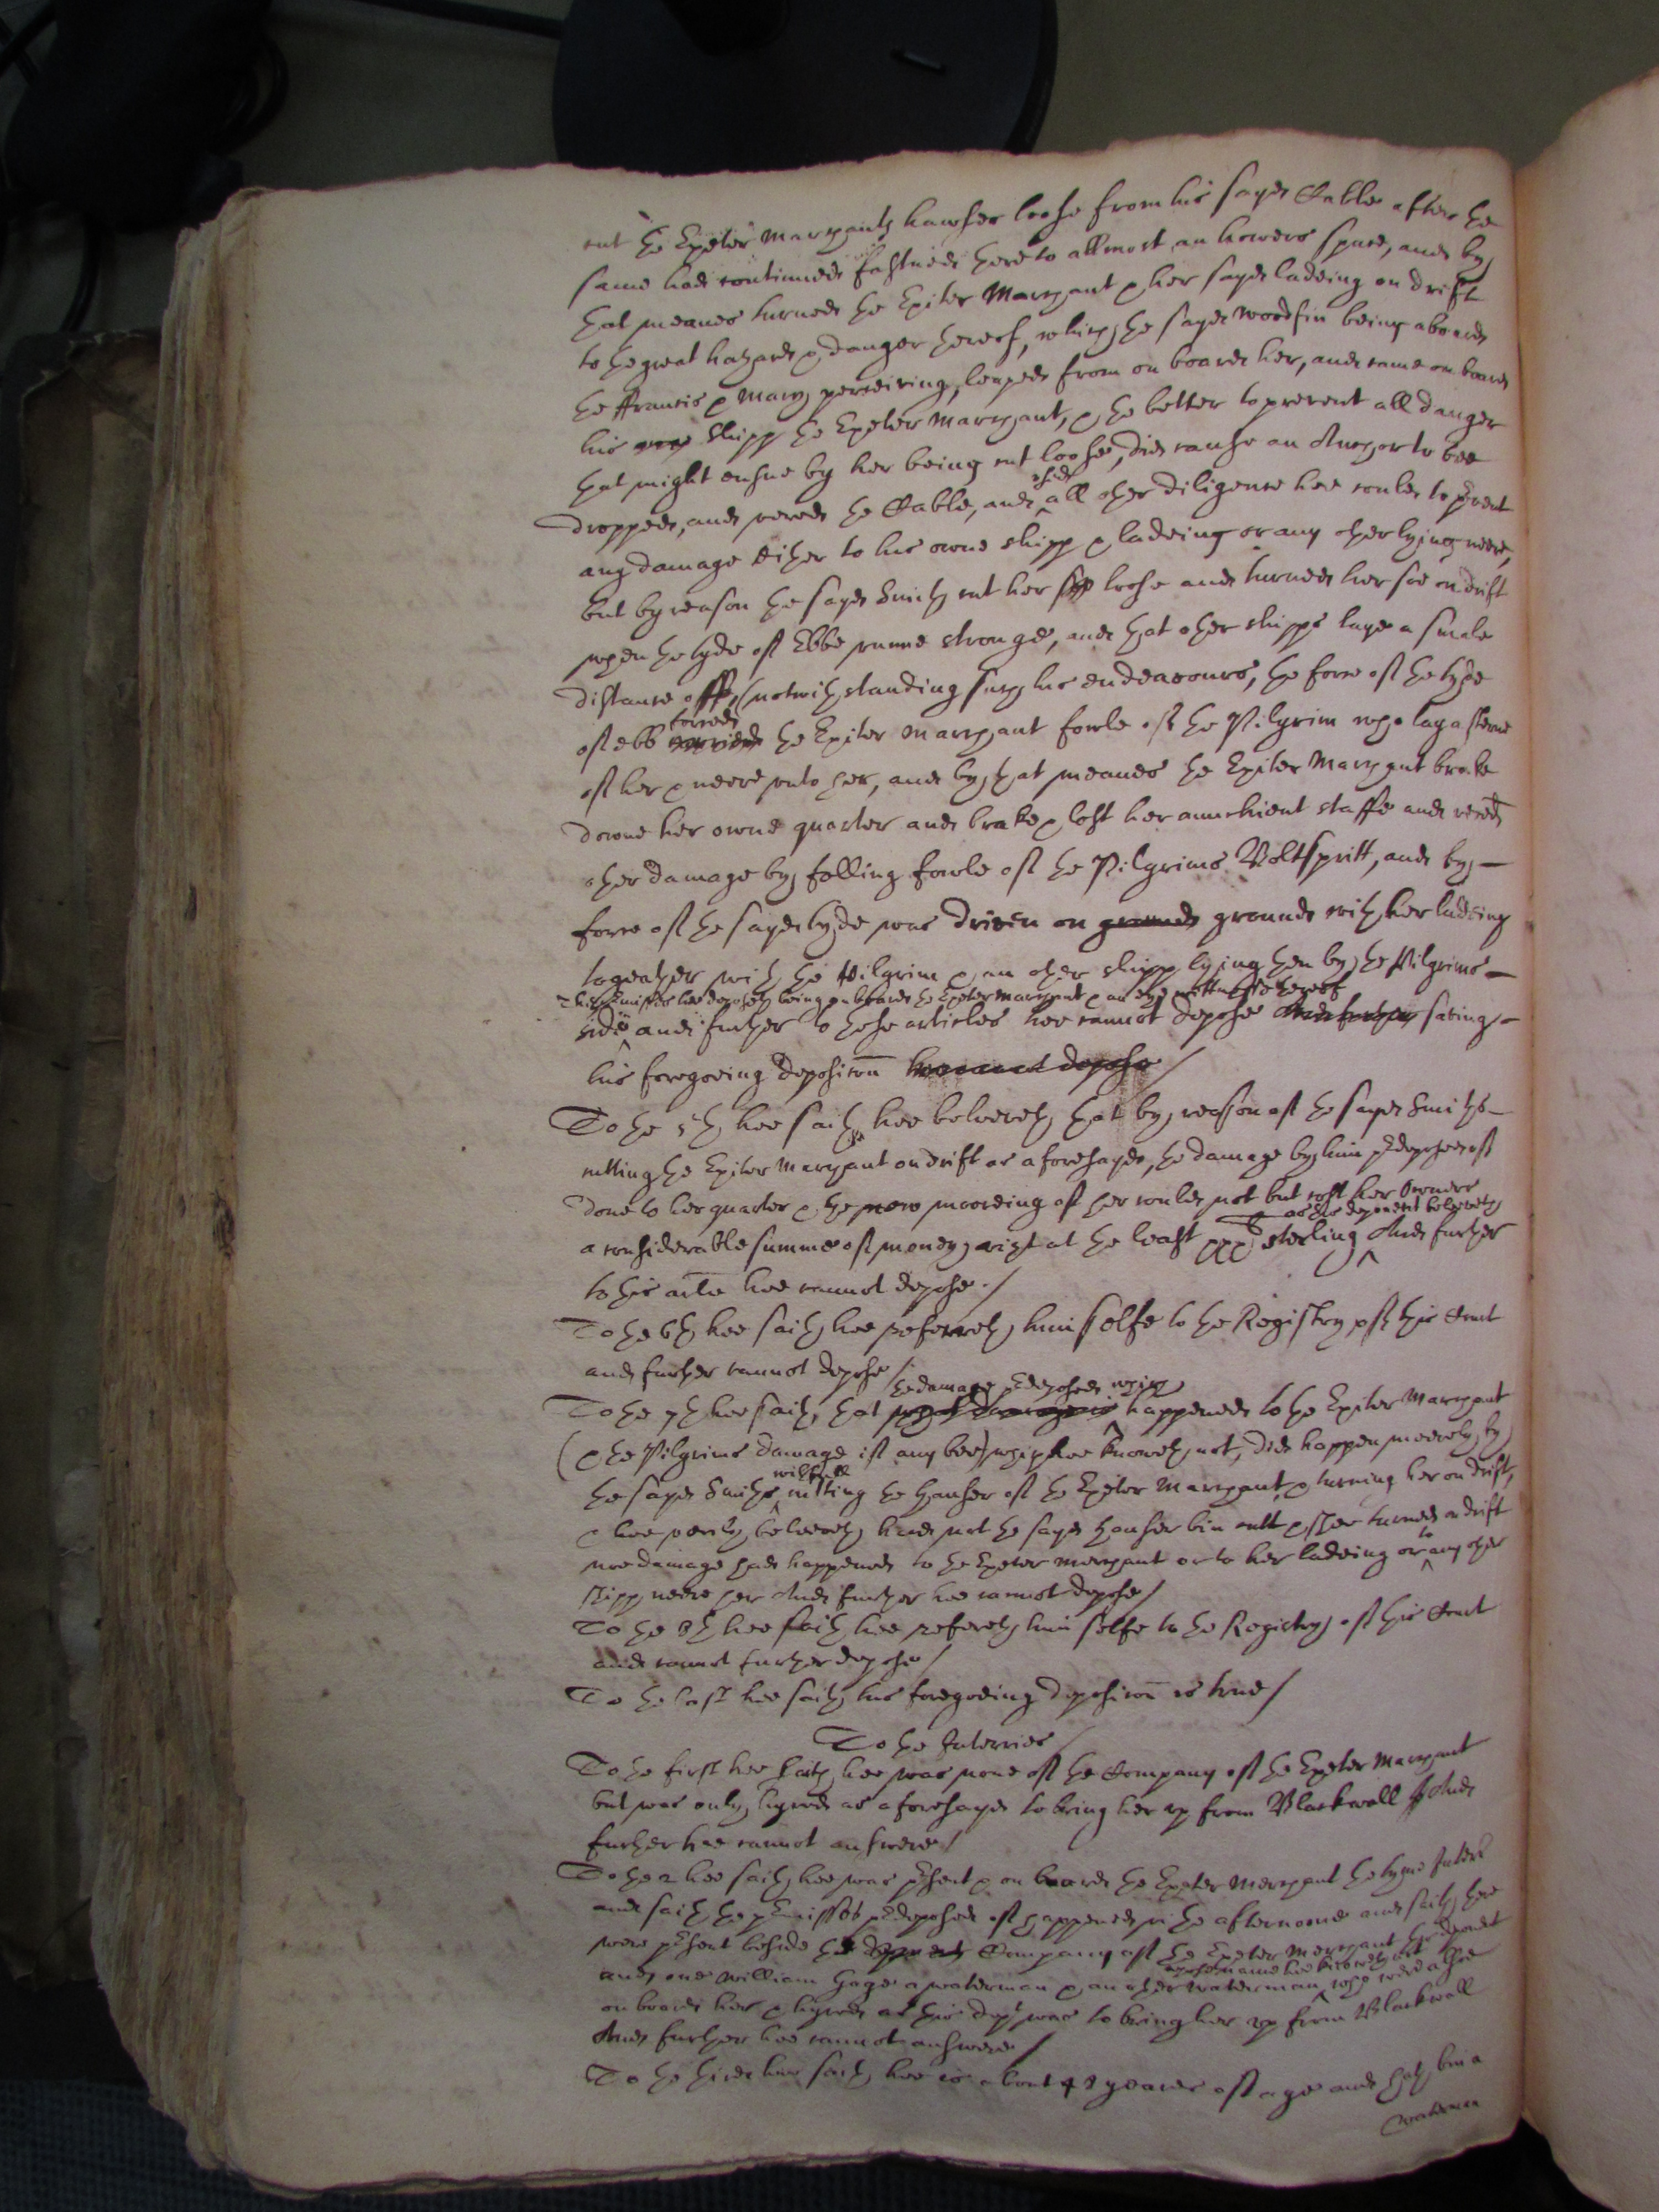 cut the Exeter Marchants hawser loose from his sayd Cable after the
same had continued fastned thereto allmost an howers space, and by
that meanes turned the Exiter Marchant & her sayd ladeing on drift
to the great hazard & danger thereof, which the sayd Woodfin being aboard
the ffrancis & Mary perceiving, leaped from on board her, and came on board
his owne shipp the Exeter Marchant, & the better to prevent all danger
that might ensue by her being cut loose, did cause an Anchor to bee
dropped, and vered the Cable, and used all other diligence hee could to prevent
any damage either to his owne shipp & ladeing or any other lying neere,
but by reason the sayd Smith cut her soe loose and turned her soe on drift
when the tyde of Ebbe runne stronge, and that other shipps laye a smale
distance off, (notwithstanding such his endeavours, the force of the tyde
of ebb carried forced the Exiter Marchant fowle of the Pilgrim who lay a sterne
of her & neere unto her, and by that meanes the Exiter Marchant brake
downe her owne quarter and brake & lost her aunchient staffe and reced
other damage by falling fowle of the Pilgrims Boltspritt, and by
force of the sayd tyde was driven on ground ground with her ladeing
togeather with the Pilgrim & an other shipp lying then by the Pilgrims
this premisses hee deposeth being on board the Exeter Marchant & an eye wittnesse thereof
side and further to these articles hee cannot depose And further saving
his foregoeing deposicon hee cannot depose /
To the 5th hee saith hee beleeveth that by reason of the sayd Smiths
cutting the Exiter Marchant on drift as aforesayd, the damage by him predeposed of
done to her quarter & the new mooreing of her could not but cost her Owners
a considerable summe of money, vizt at the least sterling as this deponent beleeveth And further
to this arle hee cannot depose ./
To the 6th hee saith hee referreth himselfe to the Registry of this Court
and further cannot depose /
To the 7th hee saith that the damage predeposed which happened to the Exiter Marchant
(& the Pilgrims damage if any bee) which hee knoweth not, did happen meerely by
the sayd Smiths willfull cutting the hauser of the Exeter Marchant & turning her on drift,
& hee verily beleeveth had not the sayd hauser bin cutt & shee turned on drift
noe damage had happened to the Exeter Merchant or to her ladeing or to any other
shipp neere her And further hee cannot depose /
To the 8th hee saith hee refereth him selfe to the Registry of this Court
and cannot further depose /
To the last hee saith his foregoeing deposicon is true /
To the Interries /
To the first hee saith hee was none of the Company of the Exeter Marchant
but was only hyred as aforesayd to bring her up from Blackwall And
further hee cannot answere /
To the 2 hee saith hee was present & on board the Exeter Merchant the tyme Interr
and saith the premisses predeposed of happened in the afternoone and saith there
were present beside the Company of the Exeter Merchant this deponent
and one William Gage a waterman & an other waterman whose name hee knoweth not who were alsoe
on board her & hyred as this dept was to bring her up from Blackwall
And further hee cannot answere /
To the third hee saith hee is about 48 yeares of age and hath bin a
waterman